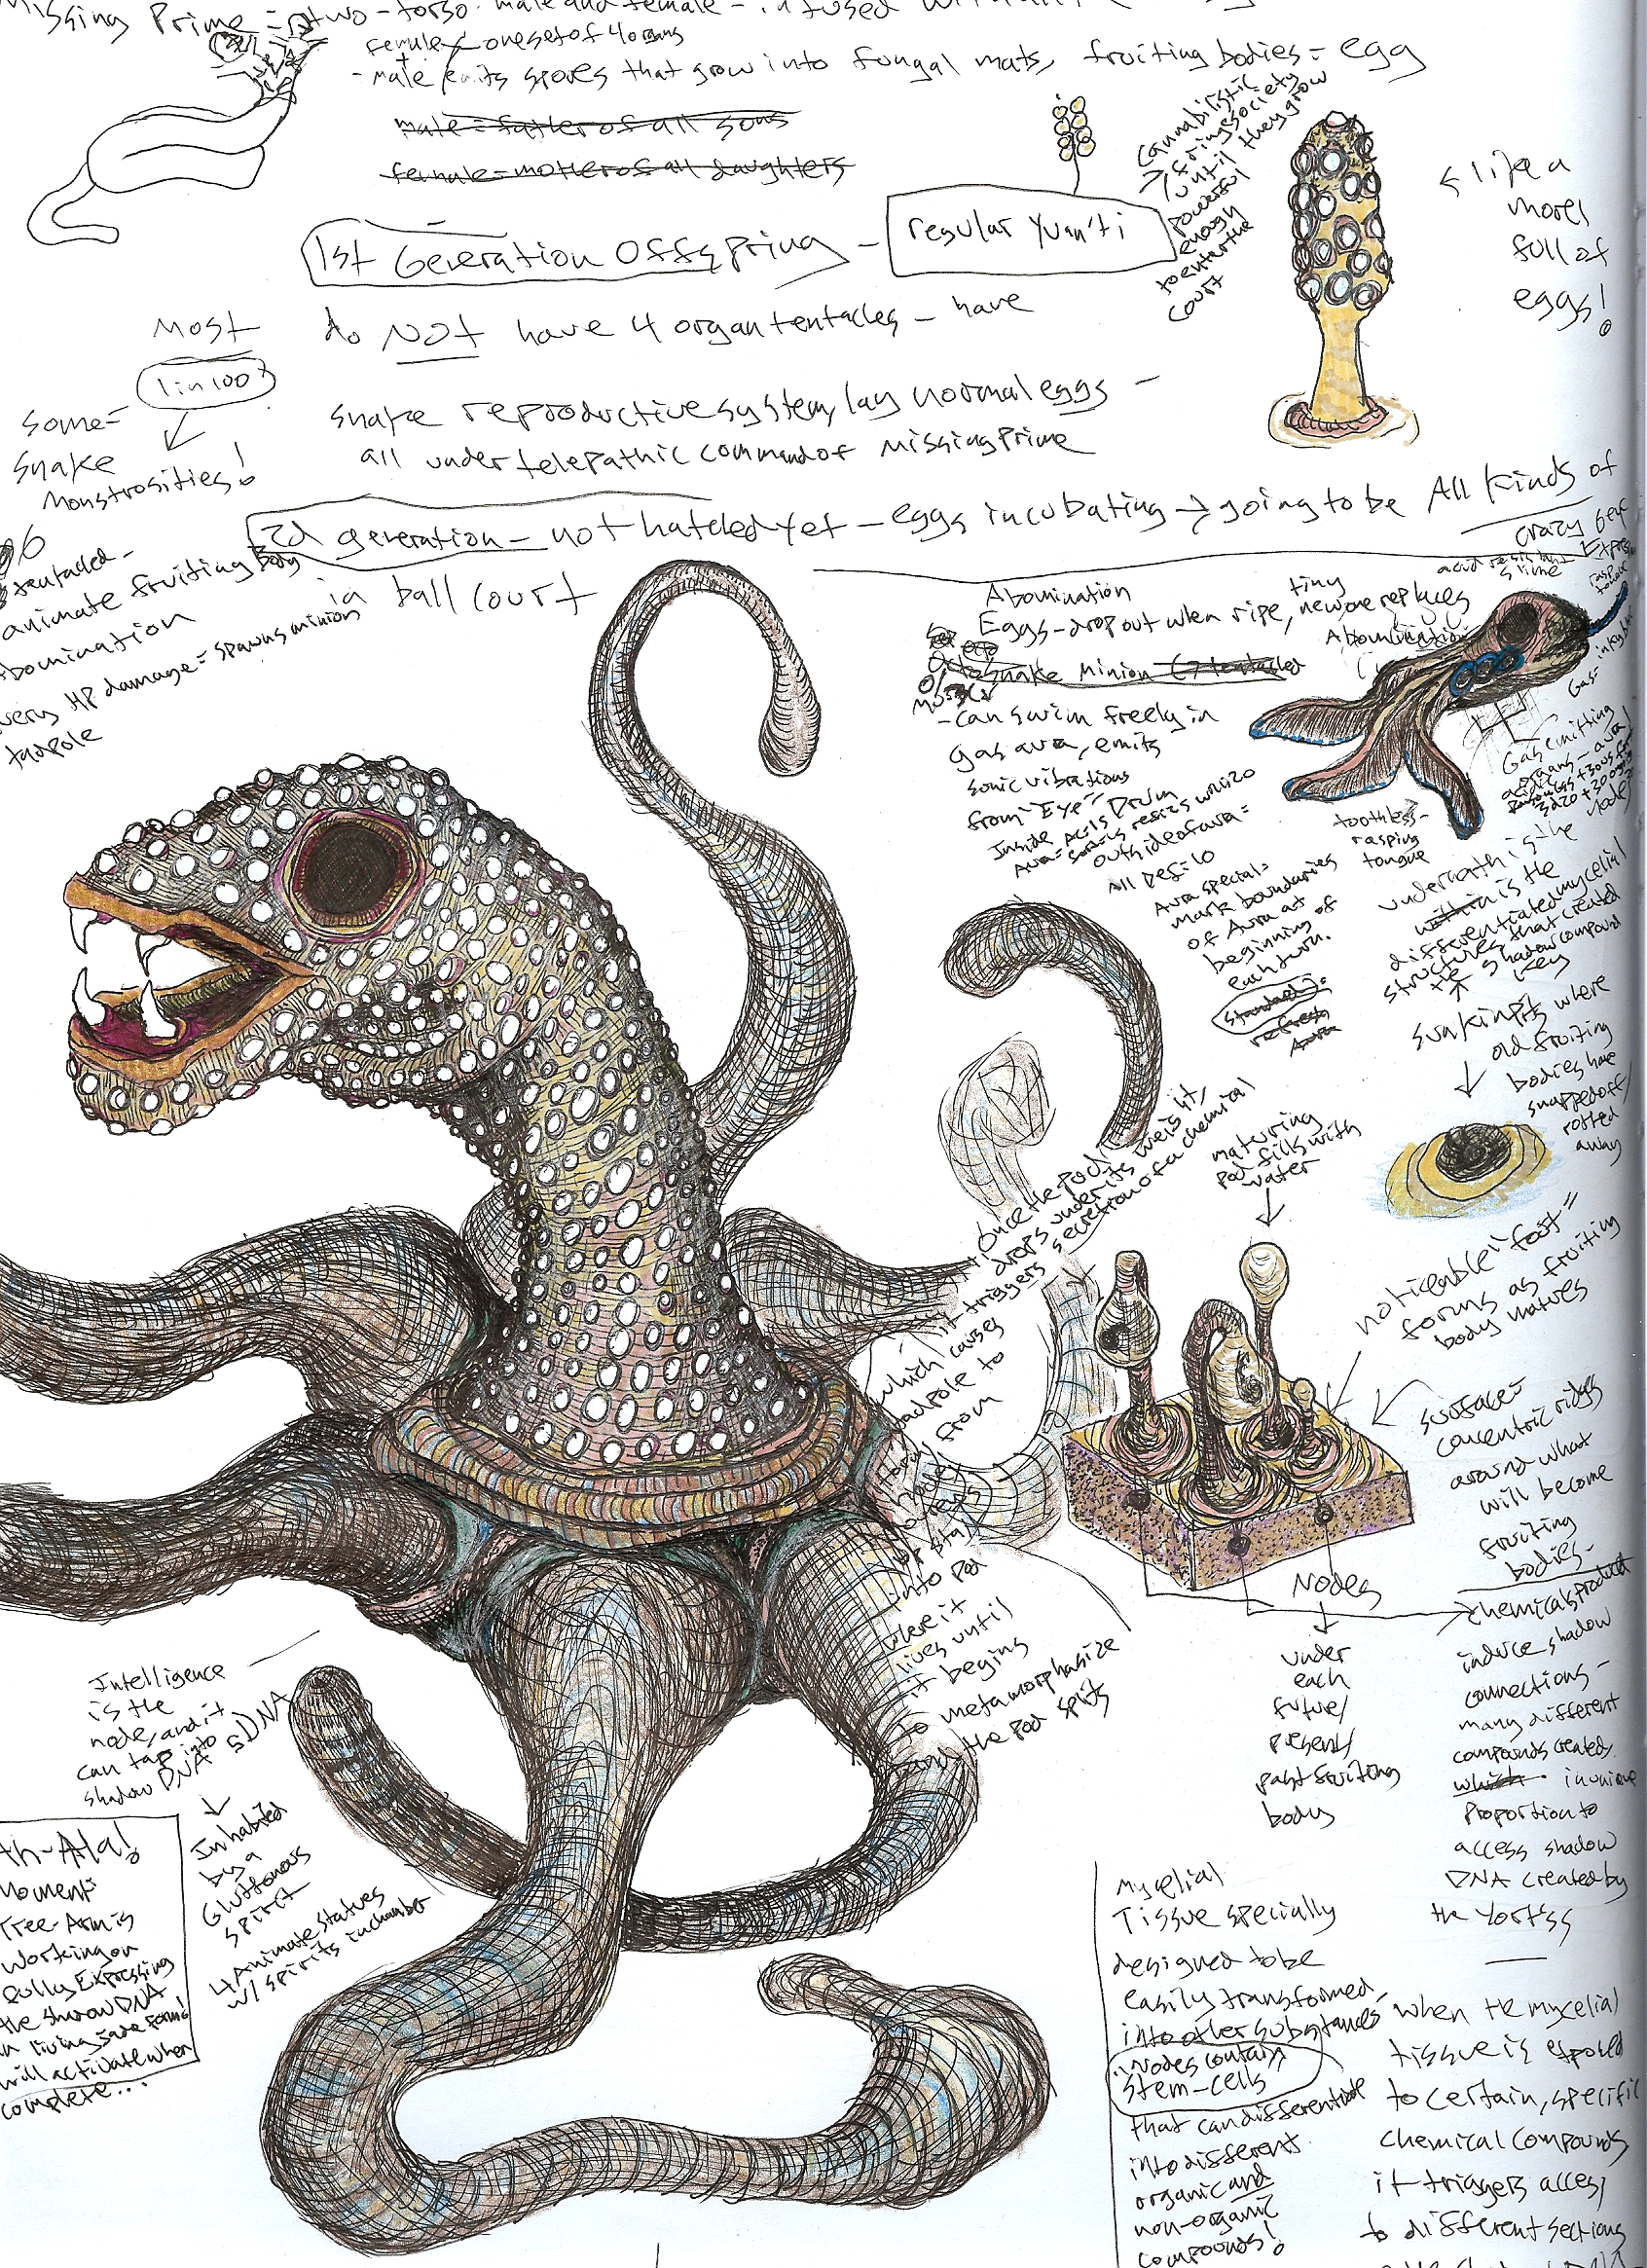 Missing Prime = two-torso male and female - infused
female = one set of 4 organs
- male emits spores that grow into fungal mats, fruiting bodies = egg
male = father of all sons
female = mother of all daughters
1st Generation Offspring - regular Yuan'ti
cannibalistic
fringe society
until they grow
powerful
enough
to enter the
court
like a
morel
full of
eggs!
Most
1 in 100?
some =
snake
monstrosities!
do NOT have 4 organ tentacles - have
snake reproductive system, lay normal eggs -
all under telepathic command of Missing Prime
2d generation - not hatched yet - eggs incubating → going to be All kinds of
crazy
in ball court
6
tentacled -
animate fruiting body
Abomination
every HP damage = spawns minion
tadpole
Abomination
Eggs - drop out when ripe, tiny new one replaces
Snake Minion
- can swim freely in
gas aura, emits
sonic vibrations
from "Eye"
Drum
Inside
Aura =
outside of aura =
All Def = 10
Aura special =
mark boundaries
of Aura at
beginning of
each turn.
Standard =
refresh
Aura
Abomination
acid resistant
slime
rasp
tongue
Gas =
Gas emitting
organs - aura
toothless -
rasping
tongue
underneath is the
within is the
differentiated mycelial
structures that created
the shadow compound
key
sunk in pits where
old fruiting
bodies have
snapped off/
rotted
away
maturing
pod fills with
water
once the pod
drops under its weight,
it triggers secretion of a chemical
which causes
tadpole to
form from
node,
up
stalk
into pod
where it
lives until
it begins
to metamorphasize
and the pod splits
noticeable "foot"
forms as fruiting
body matures
surface =
concentric ridges
around what
will become
fruiting
bodies -
Nodes
under
each
future/
present/
past fruiting
body
chemicals product
induce shadow
connections -
many different
compounds created
which in unique
proportion to
access shadow
DNA created by
the Yort'ss
Intelligence
is the
node, and it
can tap into
shadow DNA sDNA
Inhabited
by a
Gluttonous
spirit
4 Animate statues
w/ spirits in chamber
th-Ala!
Moment
Tree-Arm is
working on
fully Expressing
the shadow DNA
in living Jade form!
will activate when
complete...
Mycelial
Tissue specially
designed to be
easily transformed
into other substances
Nodes contain
stem-cells
that can differentiate
into different
organic and
non-organic
compounds!
when the mycelial
tissue is exposed
to certain, specific
chemical compounds
it triggers access
to different sections